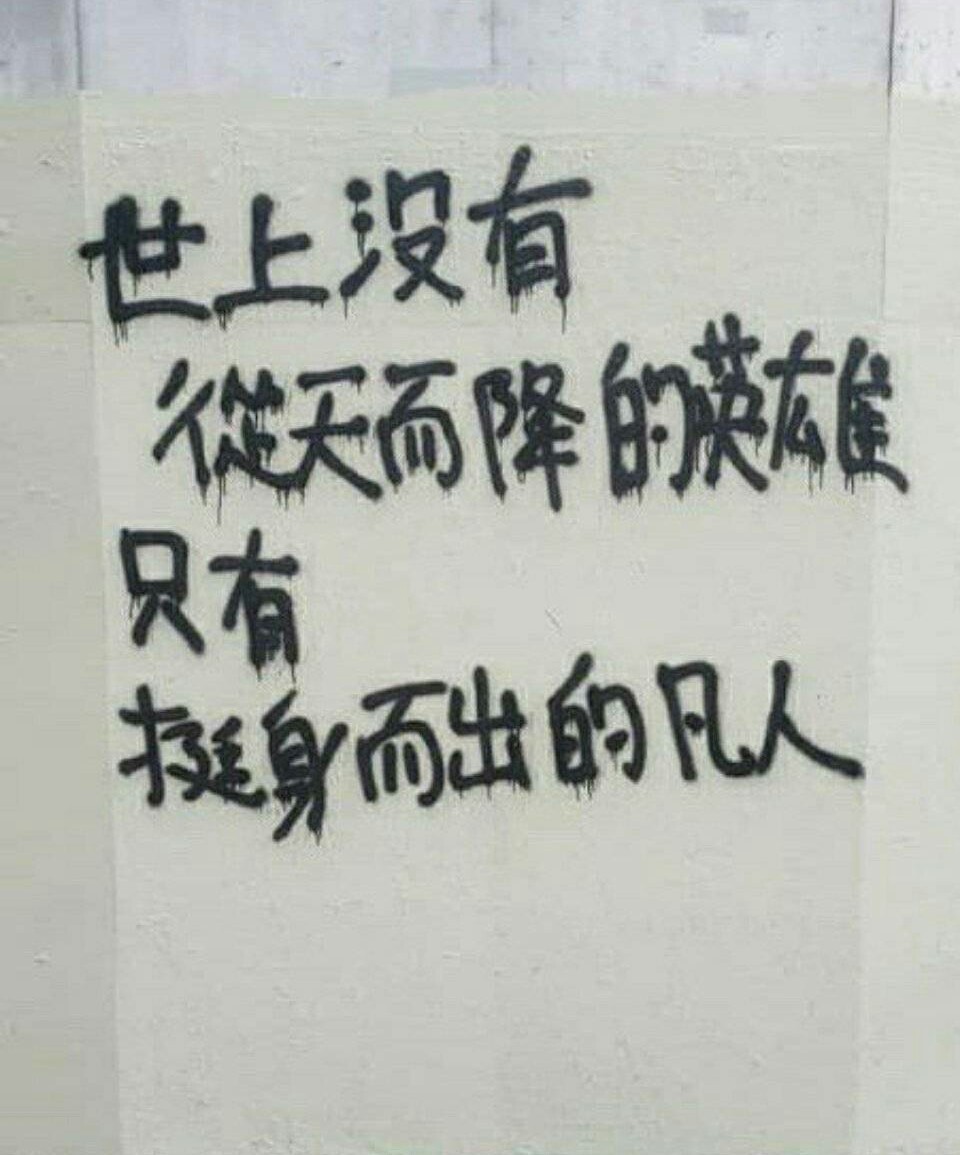 世上没有
從天而降的英雄
只有
挺身而出的凡人